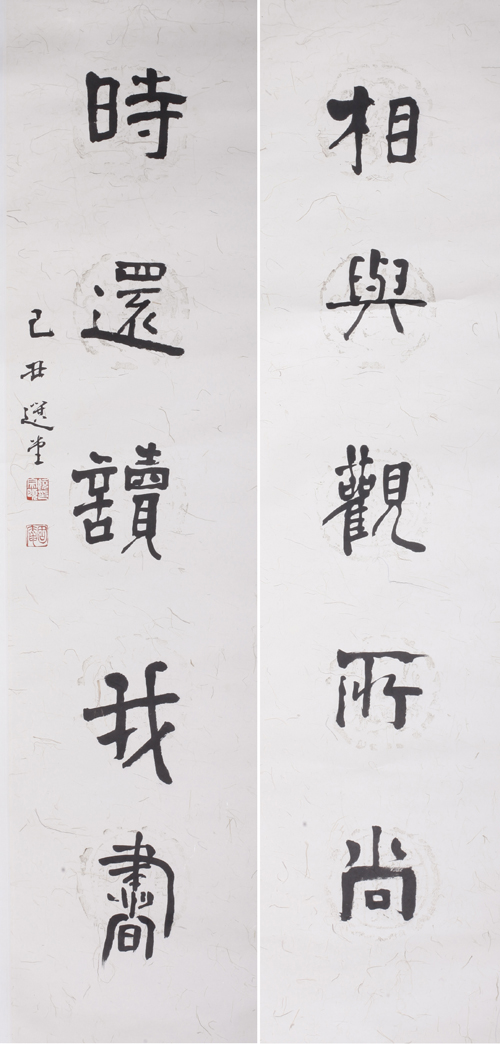 相與觀所尚
時還讀我書
己丑 選堂